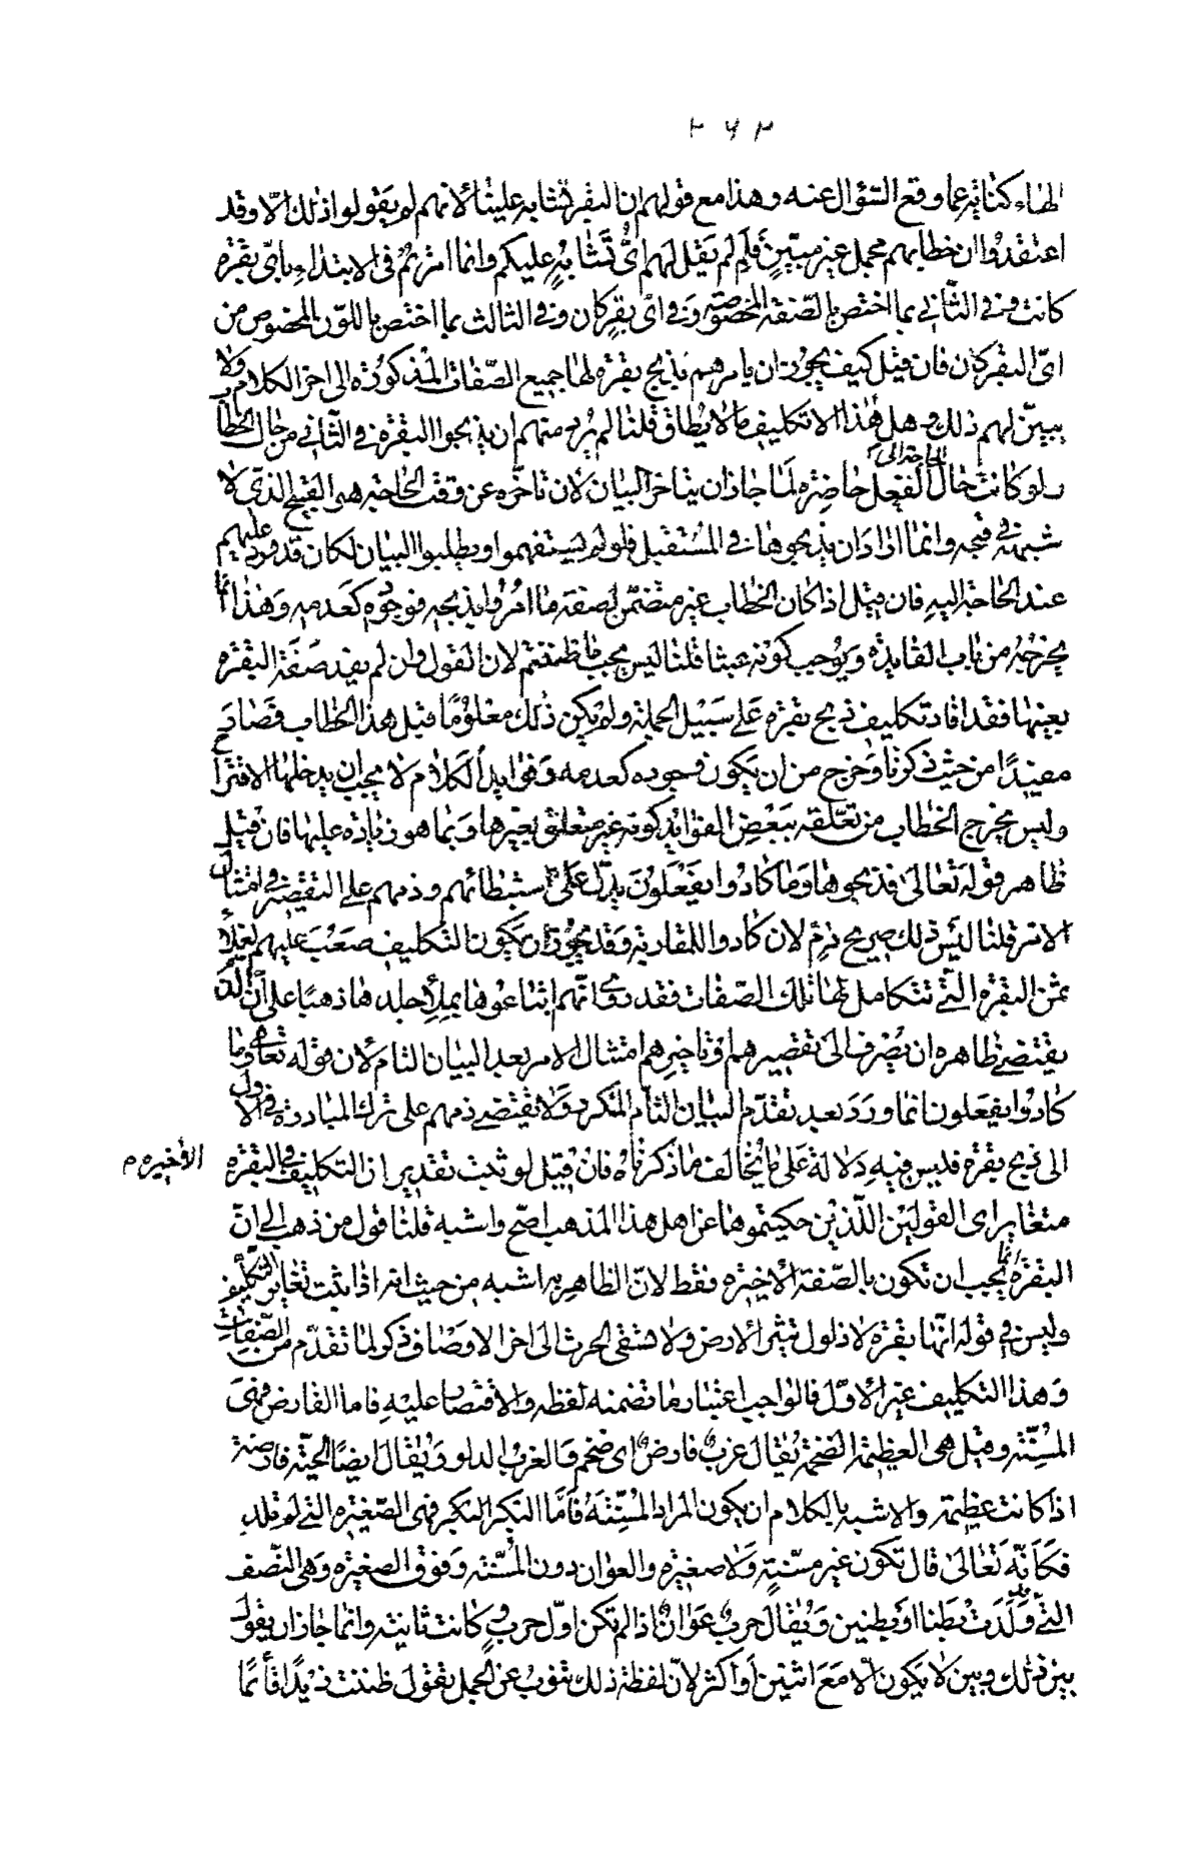 ٢٦٢
الهاء كناية عما وقع السؤال عنه وهذا مع قولهم ان البقر تشابه علينا لانهم لم يقولوا ذلك الا وقد
اعتقدوا ان خطابهم مجمل غير مبيّن فلم لم يقل لهم اىّ تشابه عليكم وانما امرتم فى الابتداء باىّ بقرة
كانت وفى الثانى بما اختص بالصّفة المخصوصة وفى اىّ بقر كان وفى الثالث بما اختص باللون المخصوص من
اىّ البقر كان فان قيل كيف يجوز ان يامرهم بذبح بقرة لها جميع الصّفات المذكورة الى اخر الكلام ولا
يبيّن لهم ذلك وهل هذا الا تكليف ما لا يطاق قلنا لم يرد منهم ان يذبحوا البقرة فى الثانى من حال الخطاب
ولو كانت حال الحاجة الى الفعل حاضرة لما جاز ان يتاخر البيان لان تاخره عن وقت الحاجة هو القبيح الذى لا
شبهة فى قبحه وانما اراد ان يذبحوها فى المستقبل فلو لم يستفهموا ويطلبوا البيان لكان قد ورد عليهم
عند الحاجة اليه فان قيل اذا كان الخطاب غير متضمّن لصفة ما امروا بذبحه فوجوده كعدمه وهذا
يخرجه من باب الفايدة ويوجب كونه عبثا قلنا ليس يجب ما ظننتم لان القول وان لم يفد صفة البقرة
بعينها فقد افاد تكليف ذبح بقرة على سبيل الجملة ولو لم يكن ذلك معلوما قبل هذا الخطاب فصار
مفيدًا من حيث ذكرنا وخرج من ان يكون وجوده كعدمه وفوايد الكلام لا يجب ان يدخلها الاقتراح
وليس يخرج الخطاب من تعلّقه ببعض الفوايد كونه غير متعلق بغيرها وبما هو زيادة عليها فان قيل
ظاهر قوله تعالى فذبحوها وما كادوا يفعلون يدلّ على استبطائهم وذمهم على التقصير فى امتثال
الامر قلنا ليس ذلك صريح ذمّ لان كادوا للمقاربة وقد يجوز ان يكون التكليف صعب عليهم لغلاء
ثمن البقرة التى تتكامل لها تلك الصّفات فقد روى انهم ابتاعوها بملإ جلدها ذهبا على ان الذم
يقتضى ظاهره ان يصرف الى تقصيرهم او تاخيرهم امتثال الامر بعد البيان التام لان قوله تعالى وما
كادوا يفعلون انما ورد بعد تقدّم البيان التام المتكرر ولا يقتضى ذمهم على ترك المبادرة فى الاول
الى ذبح بقرة فليس فيه دلالة على ما يخالف ما ذكرناه فان قيل لو ثبت تقديرا ان التكليف فى البقرة
الأخيرة م
متغاير اى القولين اللّذين حكيتموهما عن اهل هذا المذهب اصحّ واشبه قلنا قول من ذهب الى انّ
البقرة انما يجب ان تكون بالصّفة الأخيرة فقط لانّ الظاهر به اشبه من حيث انه اذا ثبت تغاير التكليف
وليس فى قوله انّها بقرة لا ذلول تثير الارض ولا تسقى الحرث الى اخر الاوصاف ذكر لما تقدّم من الصّفات
وهذا التكليف غير الاوّل فالواجب اعتبار ما تضمنه لفظه والاقتصار عليه فاما الفارض فهى
المسنّة وقيل هى العظيمة الضخمة يقال غربٌ فارضٌ اى ضخم والغرب الدلو ويقال ايضًا لحيّة فارضة
اذا كانت عظيمة والاشبه بالكلام ان يكون المراد المسنّة فامّا البكر فهى الصّغيرة التى لم تلد
فكانّه تعالى قال تكون غير مسنّة ولا صغيرة والعوان دون المسنّة وفوق الصغيرة وهى النّصف
التى ولدت بطنا او بطنين ويقال حربٌ عوانٌ اذا لم تكن اوّل حرب وكانت ثانية وانما جاز ان يقول
بين ذلك وبين لا يكون الا مع اثنين او اكثر لانّ لفظة ذلك تنوب عن الجمل تقول ظننت زيدًا قائما